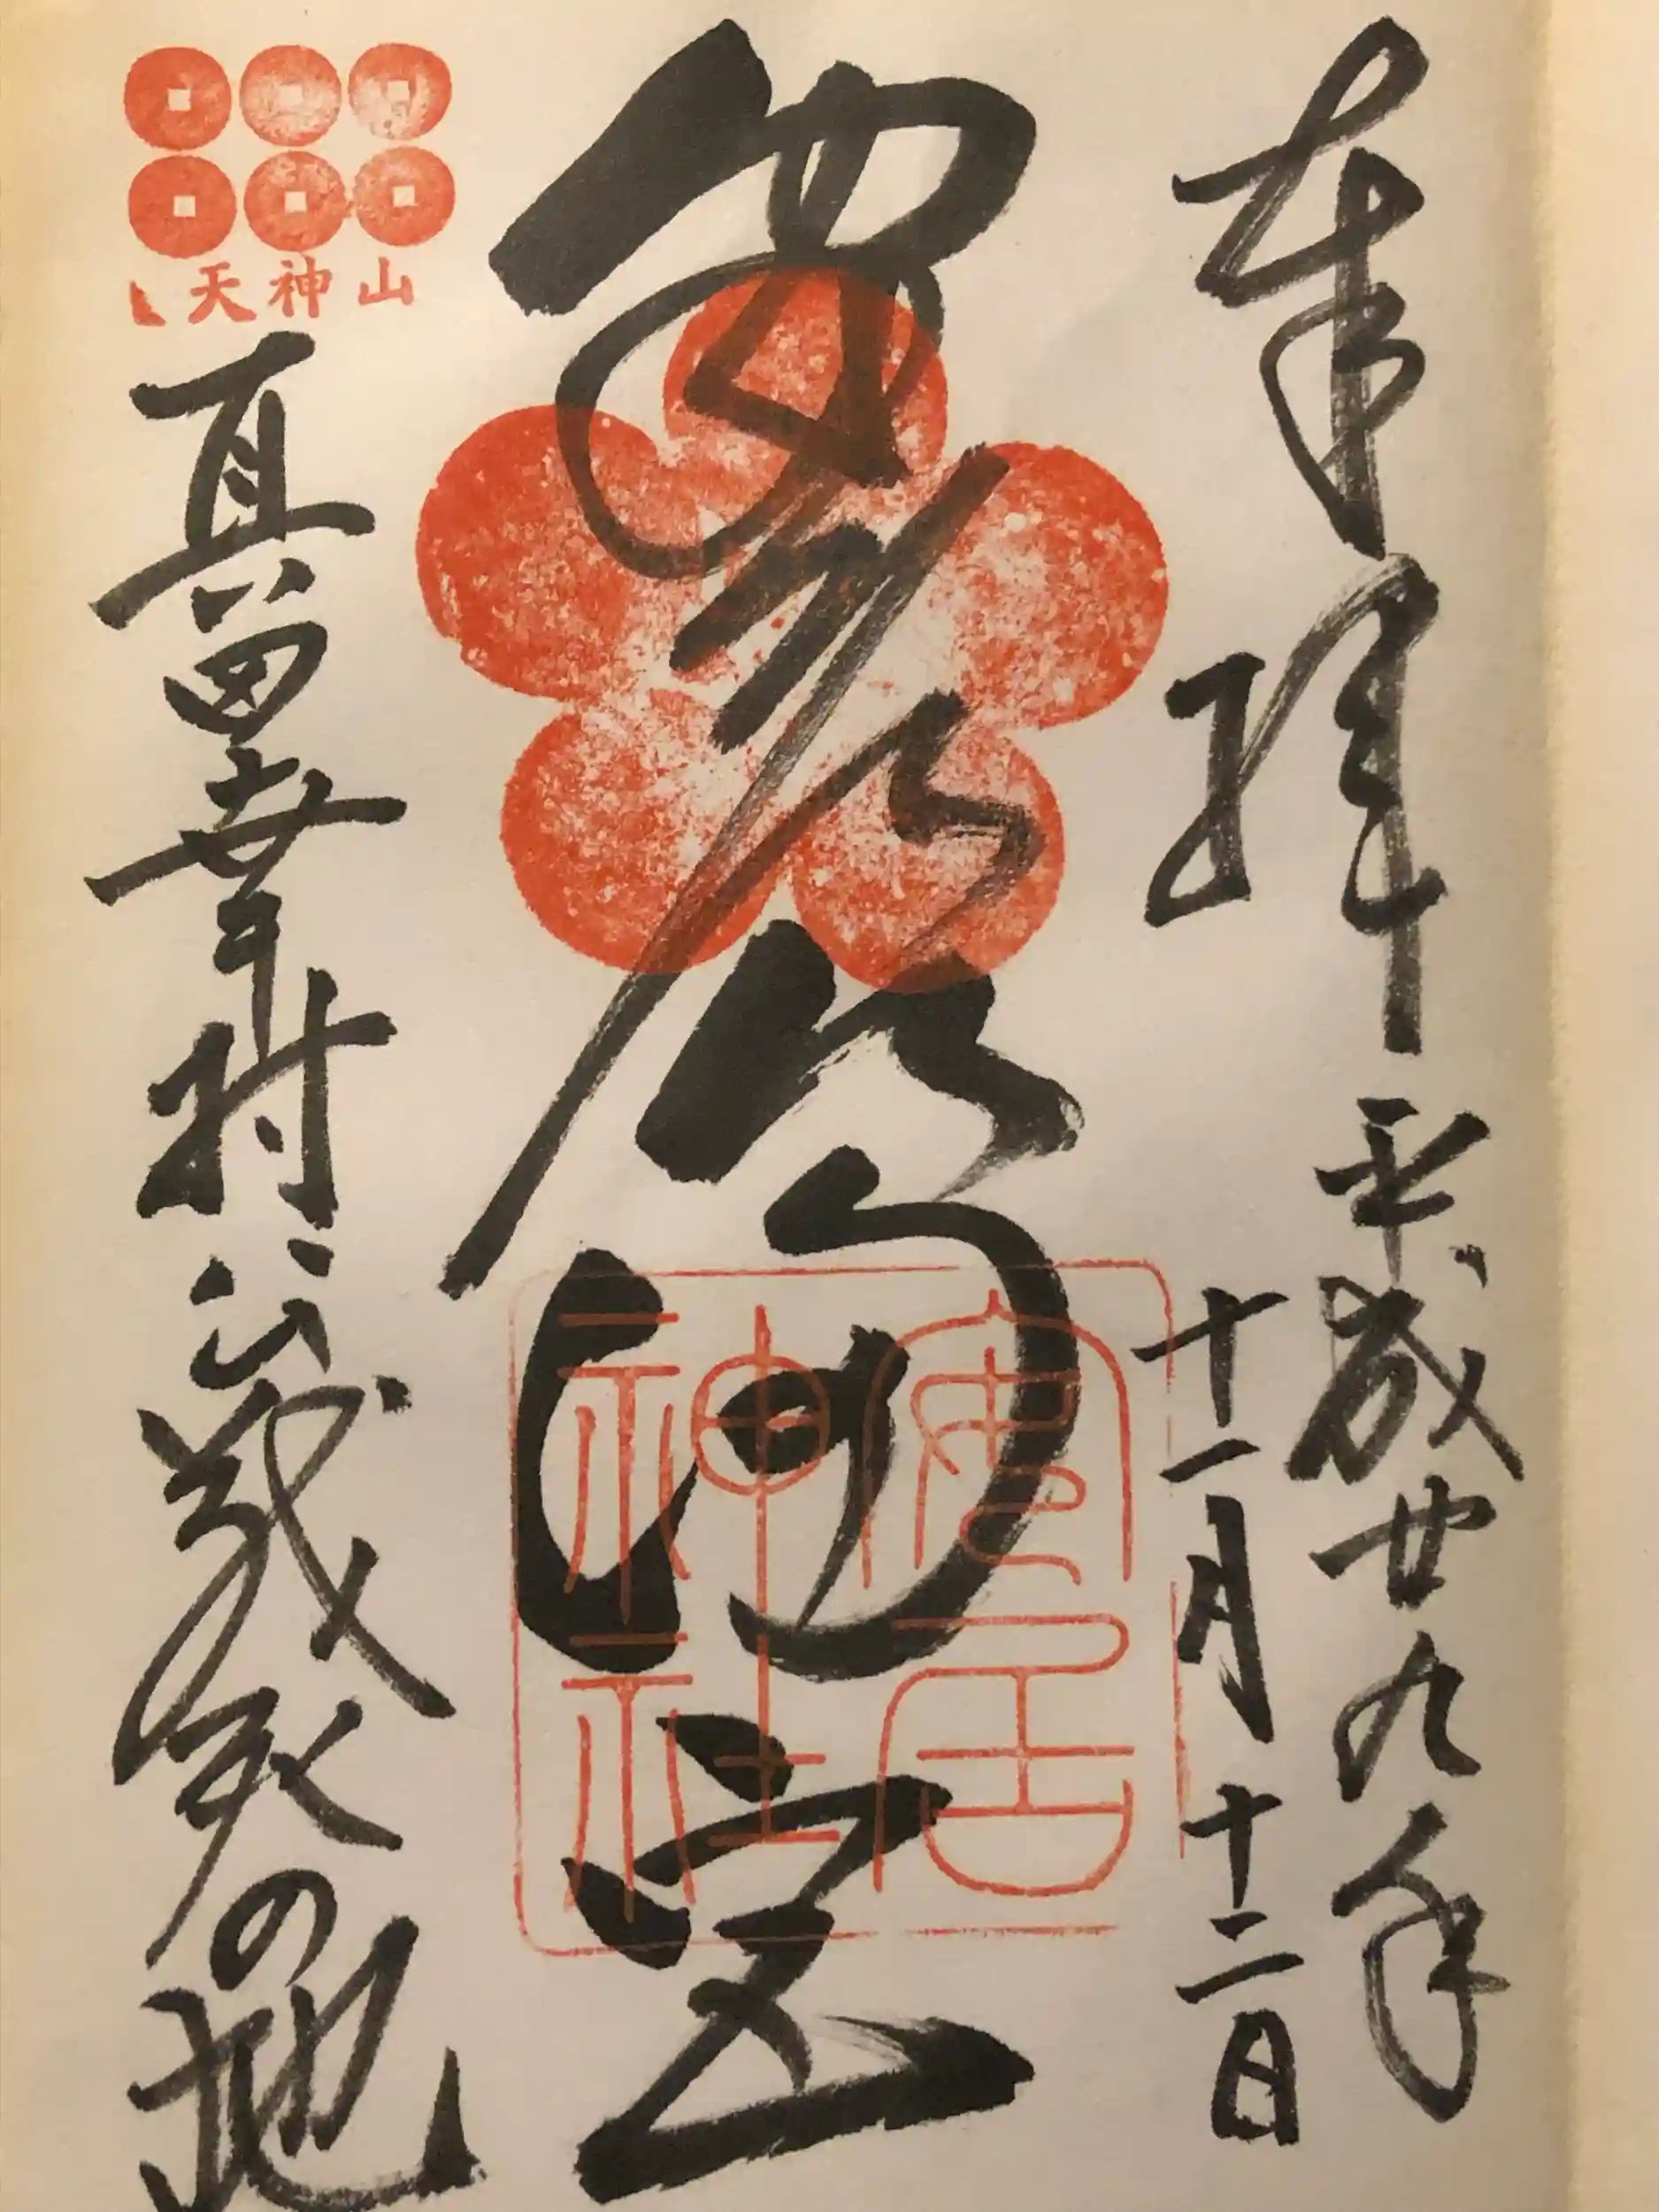 奉拝
平成廿九年
十一月十二日
安居神社
天神山
真田幸村公戦死の地